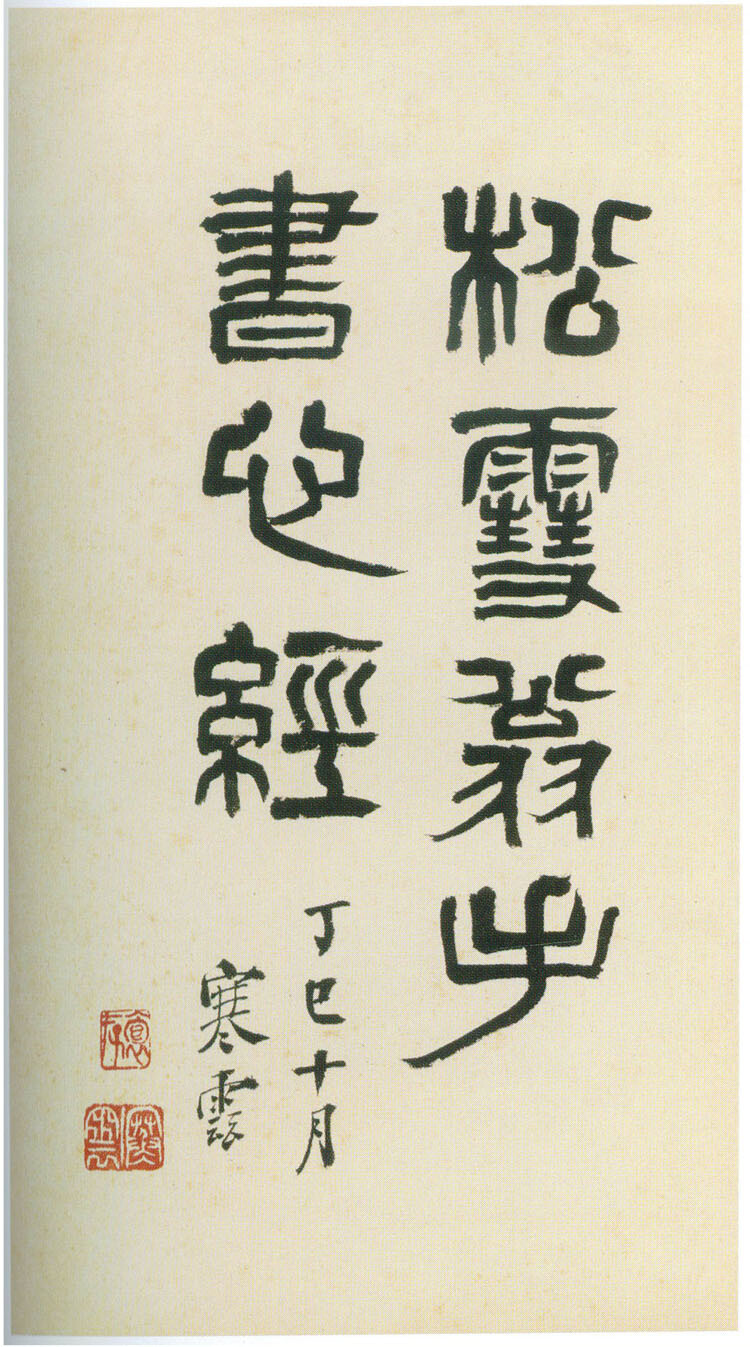 松雪翁手
書心經
丁巳十月
寒雲
寒雲